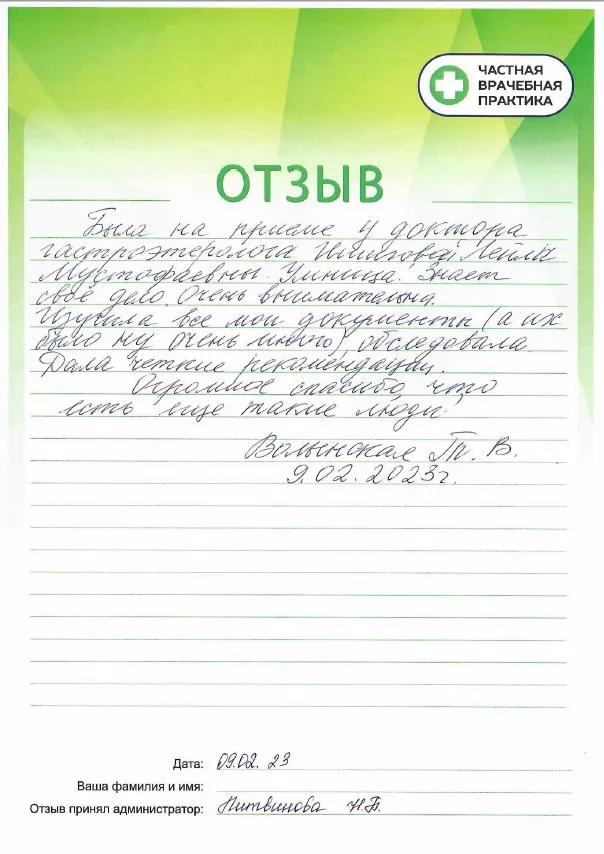 ЧАСТНАЯ
ВРАЧЕБНАЯ
ПРАКТИКА
ОТЗЫВ
Была на приеме у доктора
гастроэтеролога Лейлы
Мустофаевны. Умница! Знает
своё дело. Очень внимательна.
Изучила все мои документы (а их
было ну очень много), обследовала
Дала четкие рекомендации.
Огромное спасибо, что
есть еще такие люди!
Волынская Т. В.
9.02.2023г.
Дата: 09.02.23
Ваша фамилия и имя:
Отзыв принял администратор: Литвинова Н.В.